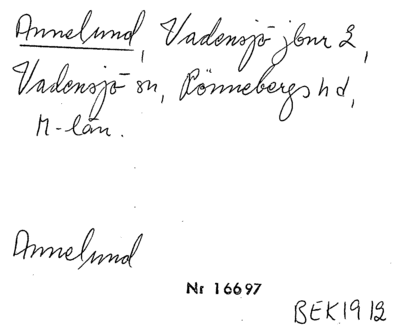 Annelund, Vadensjö jbnr 2,
Vadensjö sn, Rönnebergs hd,
M-län.
Annelund
Nr 16697
BEK 1912